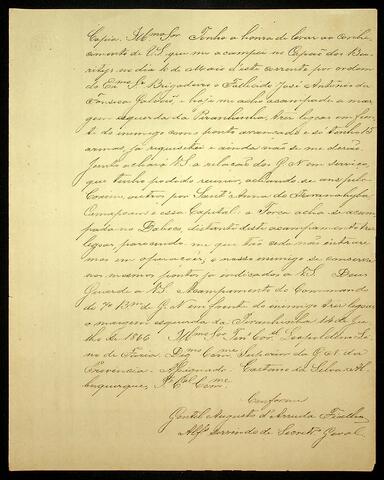 Copia. Illmo Snr. Tenho a honra de levar ao conhe-
cimento de V.S. que me acampei no Capão dos Bu-
ritys no dia 4 de Maio d'este corrente por ordem
do Exmo. Sr. Brigadeiro o Fallecido José Antonio da
Fonseca Galvão, e hoje me acho acampado a mar-
gem esquerda da Piranhinha, tres legoas em fren-
te do inimigo com ponto avançado e só tenho 15
armas, ja requisitei e ainda não se me derão.
Junto achará V.S. a relação dos G. N. em serviço,
que tenho podido reunir, achando-se uns pelo
Coxim, outros por Sant'Anna do Paranahyba
e essa Capital. a Força acha-se acam-
pada no Taboco, distante deste acampamento tres
legoas, parecendo-me que tão cedo não entrare-
mos em operações, e nosso inimigo se conserva
nos mesmos pontos ja indicados a V.S. Deus
Guarde a V.S. Acampamento do Commando
do 7o. de G. N. em frente do inimigo tres legoas
a margem esquerda da Piranhinha 14 de Ju-
lho de 1866. Illmo Snr. Tene. Corel. Leopoldino Li-
no de Faria Digmo. Comme. Superior da G. N. da
Provincia. Assignado. Caetano da Silva Al-
buquerque, Te. Cel. Comme.
Conforme
Gentil Augusto d'Arruda Fialho
Alfs. servindo de Secreto. Geral